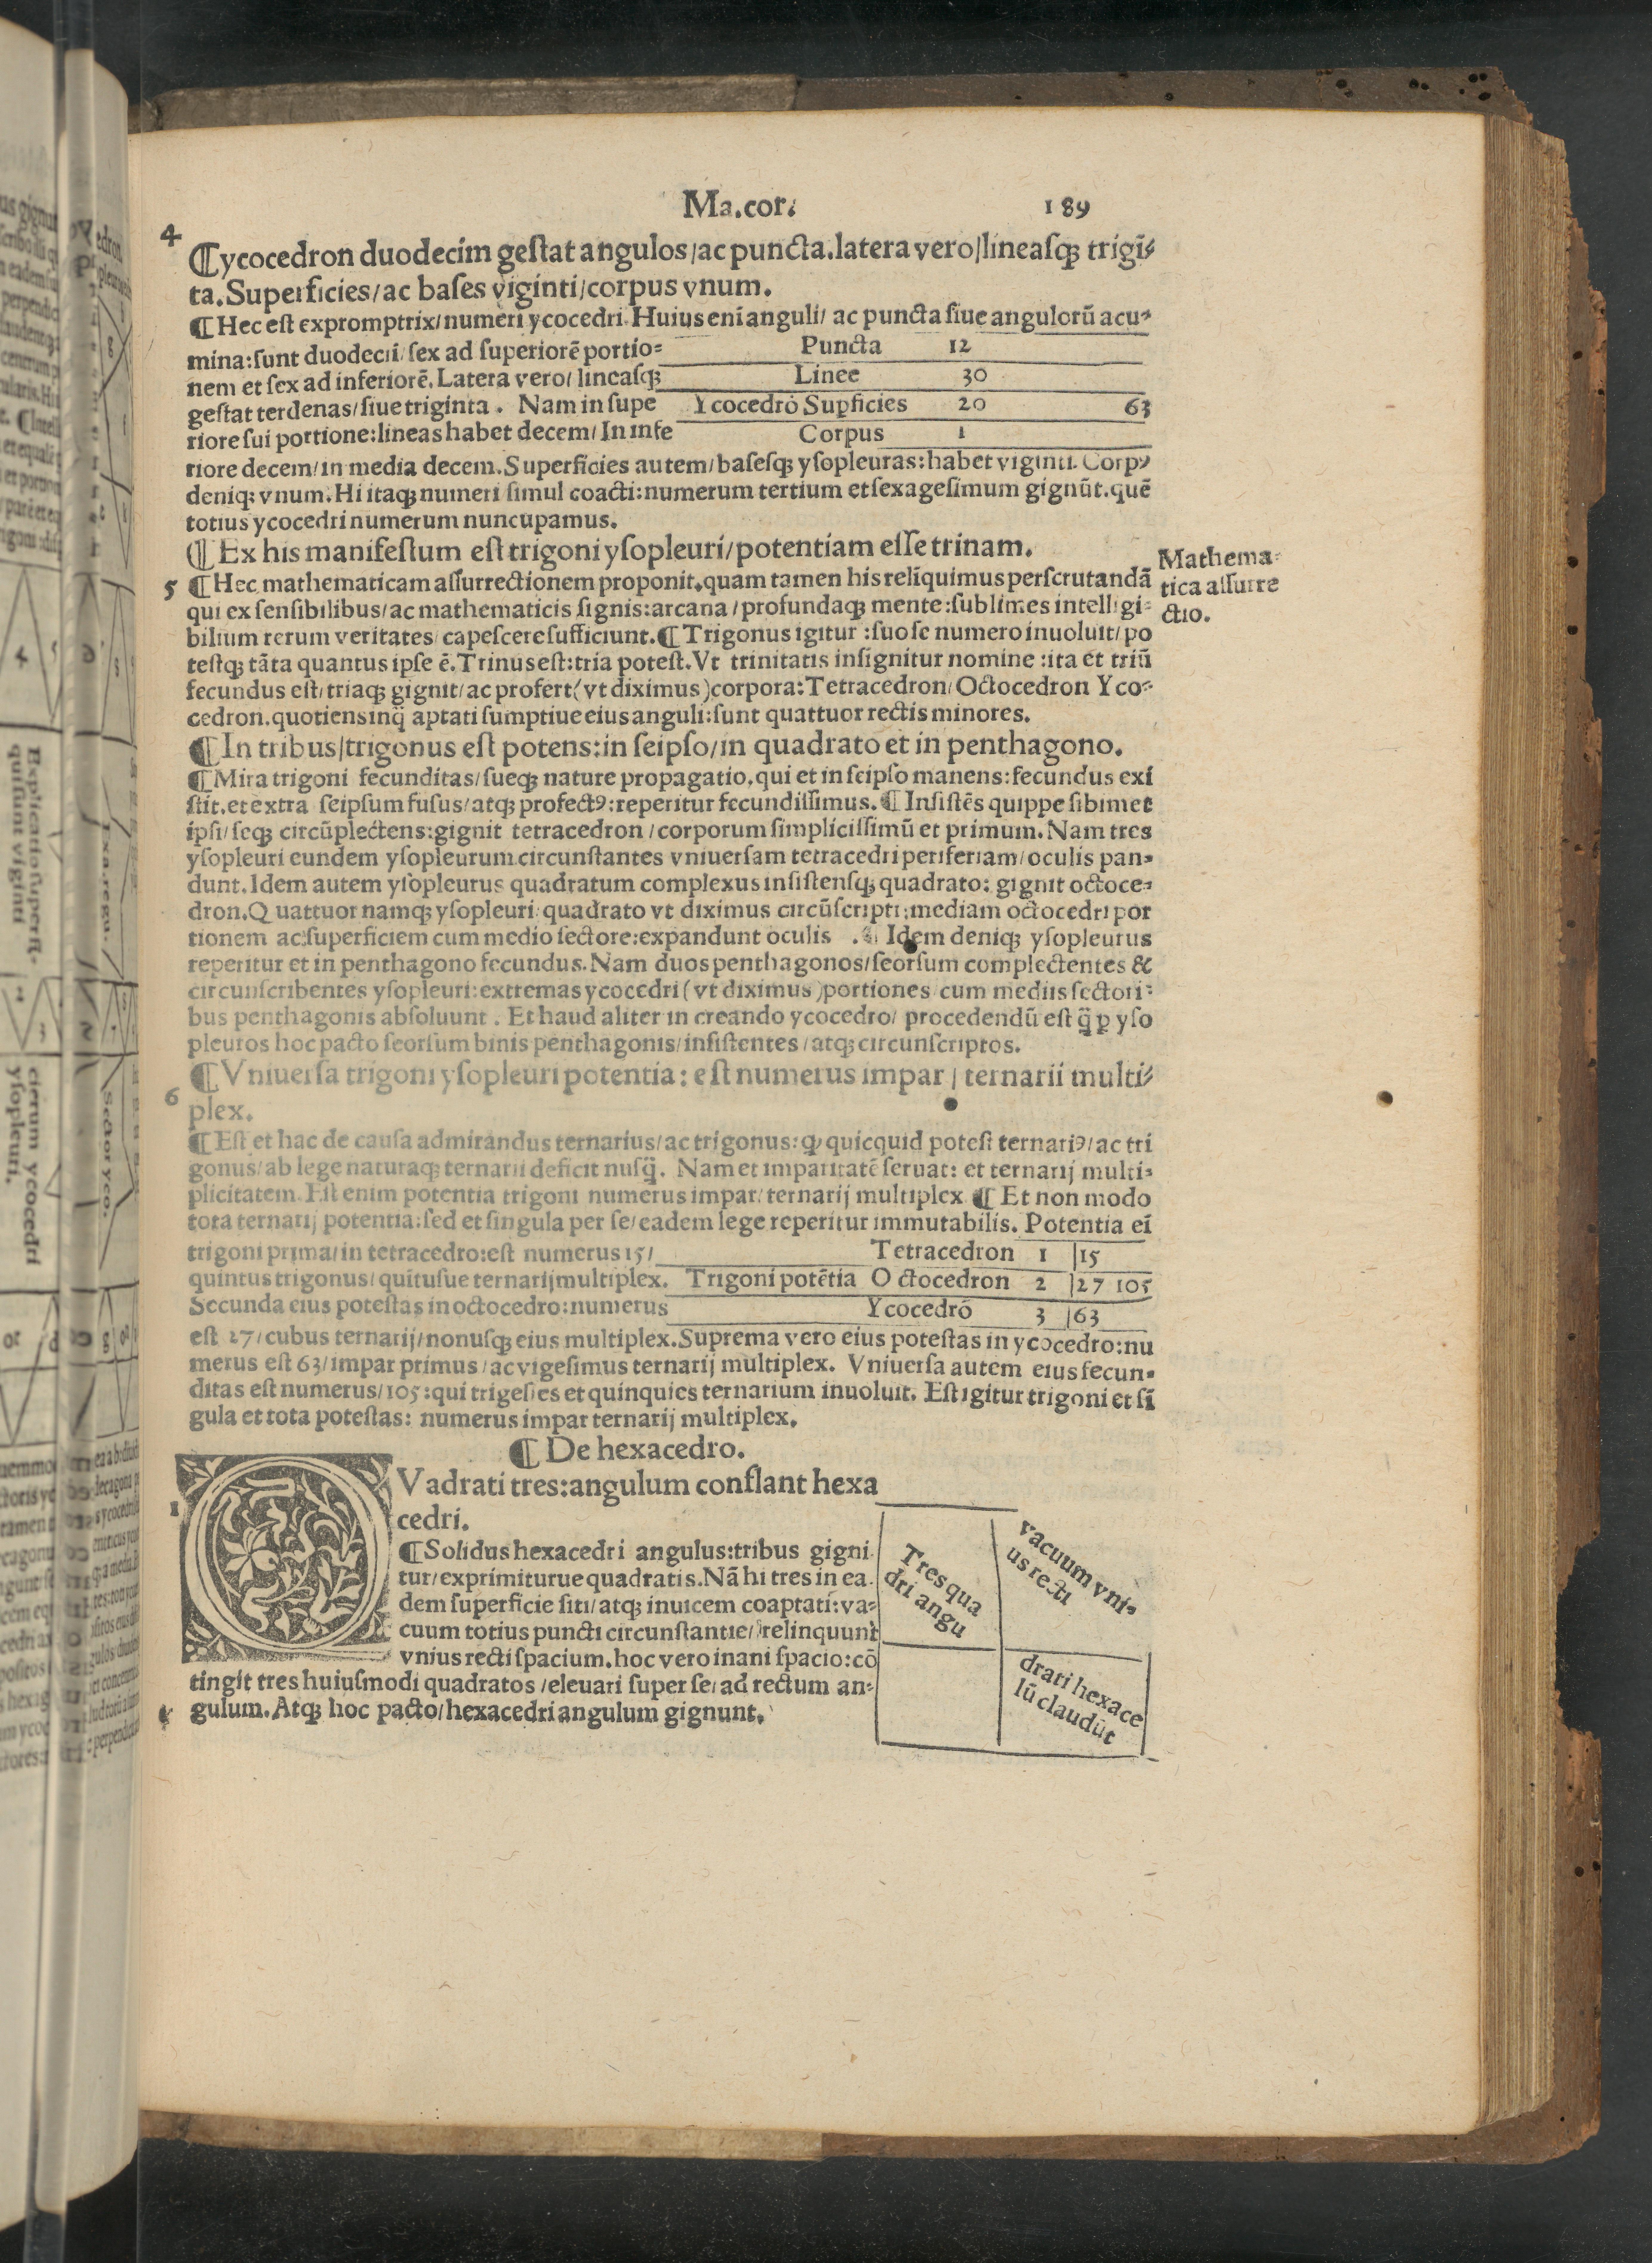 Ma.cor. 189
4
¶ycocedron duodecim geſtat angulos/ac puncta.latera vero/lineaſqꝫ trigī
ta.Superficies/ac baſes viginti/corpus vnum.
¶Hec eſt expromptrix/numeri ycocedri.Huius eni anguli/ ac puncta ſiue angulorū acu-
mina:ſunt duodecii/ſex ad ſuperiorē portio= Puncta 12
nem et ſex ad inferiorē.Latera vero/ lineaſqꝫ Linee 30
geſtat terdenas/ſiue triginta . Nam in ſupe Ycocedrō Supficies 20 63
riore ſui portione:lineas habet decem/ In infe Corpus 1
riore decem/in media decem.Superficies autem/baſeſqꝫ yſopleuras:habet viginti. Corpꝰ
deniqꝫ vnum.Hi itaqꝫ numeri ſimul coacti:numerum tertium et ſexageſimum gignūt.quē
totius ycocedri numerum nuncupamus.
¶ Ex his manifeſtum eſt trigoni yſopleuri/potentiam eſſe trinam.
5 ¶Hec mathematicam aſſurrectionem proponit.quam tamen his reliquimus perſcrutandā
Mathema-
tica aſſurre
ctio.
qui ex ſenſibilibus/ac mathematicis ſignis:arcana/profundaqꝫ mente:ſublimes intelligi-
bilium rerum veritates/capeſcere ſufficiunt.¶Trigonus igitur :ſuo ſe numero inuoluit/po
teſtqꝫ tāta quantus ipſe ē.Trinus eſt:tria poteſt.Vt trinitatis inſignitur nomine :ita et triū
fecundus eſt/triaqꝫ gignit/ac profert(vt diximus)corpora:Tetracedron/Octocedron Yco-
cedron.quotiens inq̄ aptati ſumptiue eius anguli:ſunt quattuor rectis minores.
¶In tribus/trigonus eſt potens:in ſeipſo/in quadrato et in penthagono.
¶Mira trigoni fecunditas/ſueqꝫ nature propagatio.qui et in ſeipſo manens:fecundus exi
ſtit.et extra ſeipſum fuſus/atqꝫ profectꝰ:reperitur fecundiſſimus.¶Inſiſtēs quippe ſibimet
ipſi/ſeqꝫ circūplectens:gignit tetracedron/corporum ſimpliciſſimū et primum.Nam tres
yſopleuri eundem yſopleurum circunſtantes vniuerſam tetracedri periferiam/oculis pan-
dunt.Idem autem yſopleurus quadratum complexus inſiſtenſqꝫ quadrato: gignit octoce-
dron.Quattuor namqꝫ yſopleuri quadrato vt diximus circūſcripti:mediam octocedri por
tionem ac ſuperficiem cum medio ſectore:expandunt oculis .¶ Idem deniqꝫ yſopleurus
reperitur et in penthagono fecundus.Nam duos penthagonos/ſeorſum complectentes &
circunſcribentes yſopleuri:extremas ycocedri(vt diximus)portiones cum mediis ſectori-
bus penthagonis abſoluunt . Et haud aliter in creando ycocedro/ procedendū eſt q̄ ꝑ yſo
pleuros hoc pacto ſeorſum binis penthagonis/inſiſtentes/atqꝫ circunſcriptos.
6 ¶Vniuerſa trigoni yſopleuri potentia: eſt numerus impar / ternarii multi-
plex.
¶Eſt et hac de cauſa admirandus ternarius/ac trigonus:ꝙ quicquid poteſt ternariꝰ/ac tri
gonus/ab lege naturaqꝫ ternarii deficit nuſq̄. Nam et imparitatē ſeruat: et ternarij multi-
plicitatem.Eſt enim potentia trigoni numerus impar/ternarij multiplex ¶Et non modo
tota ternarij potentia:ſed et ſingula per ſe/eadem lege reperitur immutabilis. Potentia ei
trigoni prima/in tetracedro:eſt numerus 15/ Tetracedron 1 |15
quintus trigonus/quituſue ternarij multiplex. Trigoni potētia Octocedron 2 |27 105
Secunda eius poteſtas in octocedro:numerus Ycocedrō 3 |63
eſt 27/cubus ternarij/nonuſqꝫ eius multiplex.Suprema vero eius poteſtas in ycocedro:nu
merus eſt 63/impar primus/ac vigeſimus ternarij multiplex. Vniuerſa autem eius fecun-
ditas eſt numerus/105:qui trigeſies et quinquies ternarium inuoluit. Eſt igitur trigoni et ſi
gula et tota poteſtas: numerus impar ternarij multiplex.
¶De hexacedro.
1 QVadrati tres:angulum conflant hexa
cedri.
¶Solidus hexacedri angulus:tribus gigni
tur/exprimiturue quadratis.Nā hi tres in ea
dem ſuperficie ſiti/atqꝫ inuicem coaptati:va-
cuum totius puncti circunſtantie/ relinquunt
vnius recti ſpacium.hoc vero inani ſpacio:cō
tingit tres huiuſmodi quadratos/eleuari ſuper ſe/ad rectum an-
gulum.Atqꝫ hoc pacto/hexacedri angulum gignunt.
Tres qua
dri angu
vacuum vni-
us recti
drati hexace
lū claudūt